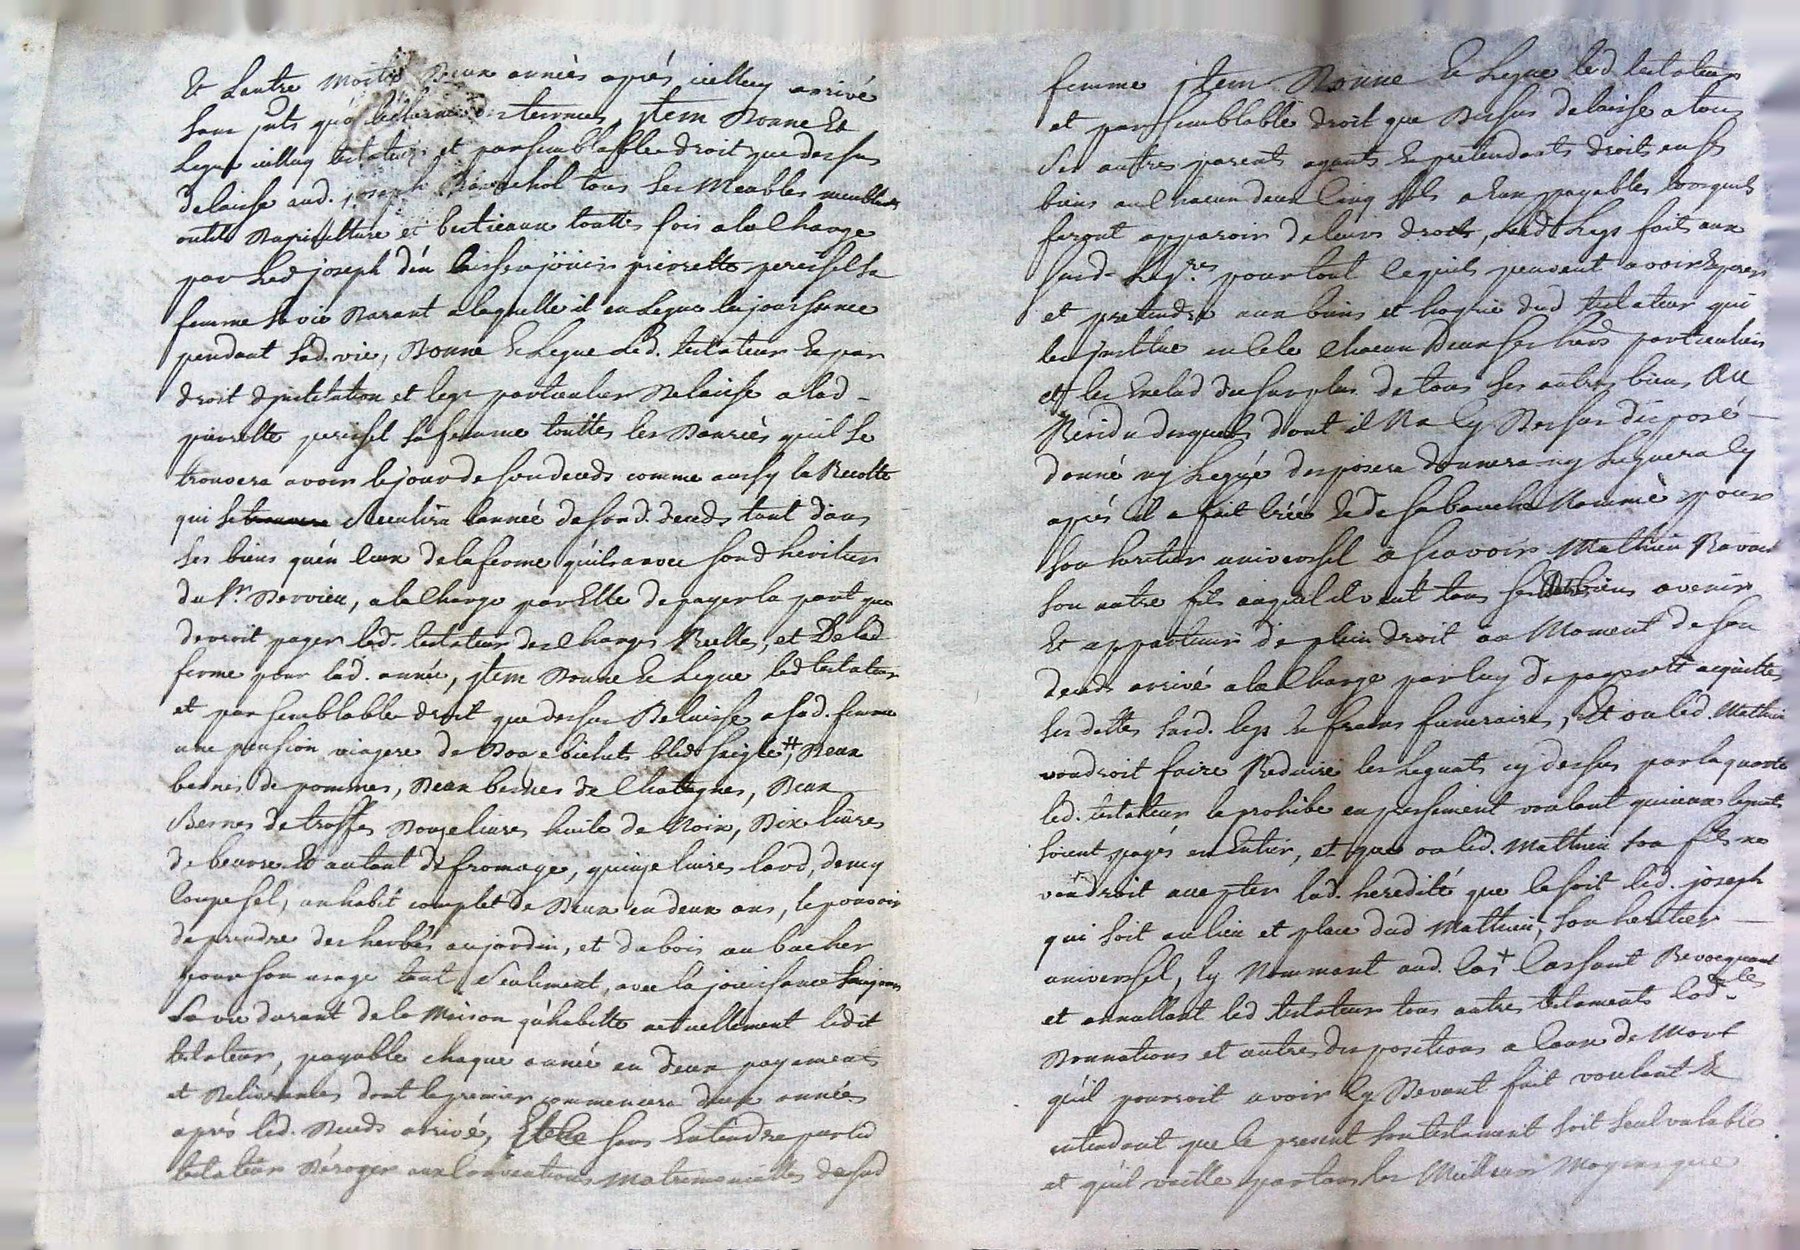 Et Lautre Moitié Deux années après icelluy arrivé
sans jnts qu'a lesd. termes, jtem Donne Et
Legue icelluy testateur et par semblable droit que dessus
delaisse aud. joseph tous ses Meubles meublants
outils Dagriculture et bestieaux touttes fois a la Charge
par Led joseph d'en laisser jöuir pierrette perissel sa
femme sa vie Durant a laquelle il en Legue la jouissance
pendant sad. vie, Donne & Legue Led. testateur & par
droit d'jnstitution et legs particulier Delaisse a lad -
pierrette perissel sa femme touttes les Danrées qu'il se
trouvera avoir le jour de son deceds comme aussy la Recolte
qui se Recullira lannée de sond. deceds tant dans
ses biens qu'en ceux de la ferme qu'il a avec sond heritier
du Sr. Dervieu, a la Charge par Elle de payer la part que
devroit payer led. testateur des Charges Reelles, et De lad
ferme pour lad. année, jtem Donne & Legue led testateur
et par semblable droit que dessus Delaisse a sad. femme
une pension viagere de Douze bichets bled seigle, Deux
bennes de pommes, Deux bennes de Chataignes, Deux
Bennes de troffes Douze livres huile de Noix, Dix livres
de beurre Et autant de fromage, quinze livres lard, demy
Coupe sel, un habit complet de Deux en deux ans, le pouvoir
de prendre des herbes au jardin, et du bois au bucher
pour son usage tant seulement, avec la jouissance
sa vie durant de la Maison qu'habitte actuellement ledit
testateur, payable chaque année en deux payements
et Delivrances dont le premier commencera deux années
après led. Deceds arrivé, Et le sans Entendre par led
testateur Déroger aux Conventions Matrimonialles de sad
femme jtem Donne & Legue led. testateur
et par semblable droit que Dessus delaisse a tous
Ses autres parents ayants & pretendants droits en ses
biens a chacun deux Cinq sols a Eux payables lorsquils
feront apparoir de leurs droits, Lesd Legs faits aux
susd. Legres. pour tout ce quils peuvent avoir Esperer
et pretendre aux biens et hoyrie dud testateur qui
les jnstitüe en cele Chacun Deux ses hers particuliers
et les Exclud du surplus de tous ses autres biens Au
Residu desquels dont il Na Cy Dessus disposé
donné ny Legué disposera donnera ny Leguera Cy
après il a fait Créé & de sa bouche Nommé pour
son heritier universel a sçavoir Mathieu
son autre fils auquel il veut tous sesd. biens avenir
Et appartenir de plein droit au Moment de son
deceds arrivé a la Charge par luy de payer et acquitter
ses dettes susd. legs & fraix funeraires, Et ou led. Mathieu
voudroit faire Reduire les Leguats cy dessus par la quarte
led. testateur le prohibe expressement voulant qu'iceux leguats
soient payés en Entier, et que ou led. Mathieu son fils ne
voudroit accepter lad. heredité que ce soit led. joseph
qui soit au lieu et place dud Mathieu, son heritier
universel, Cy Nommant aud. Cas. Cassant Revocquant
et annullant led testateur tous autres testaments Codlles
Donnations et autres dispositions a Cause de Mort
qu'il pourroit avoir Cy Devant fait voulant &
entendant que le present son testament soit seul valable
et qu'il vaille par tous les Meilleurs Moyens que